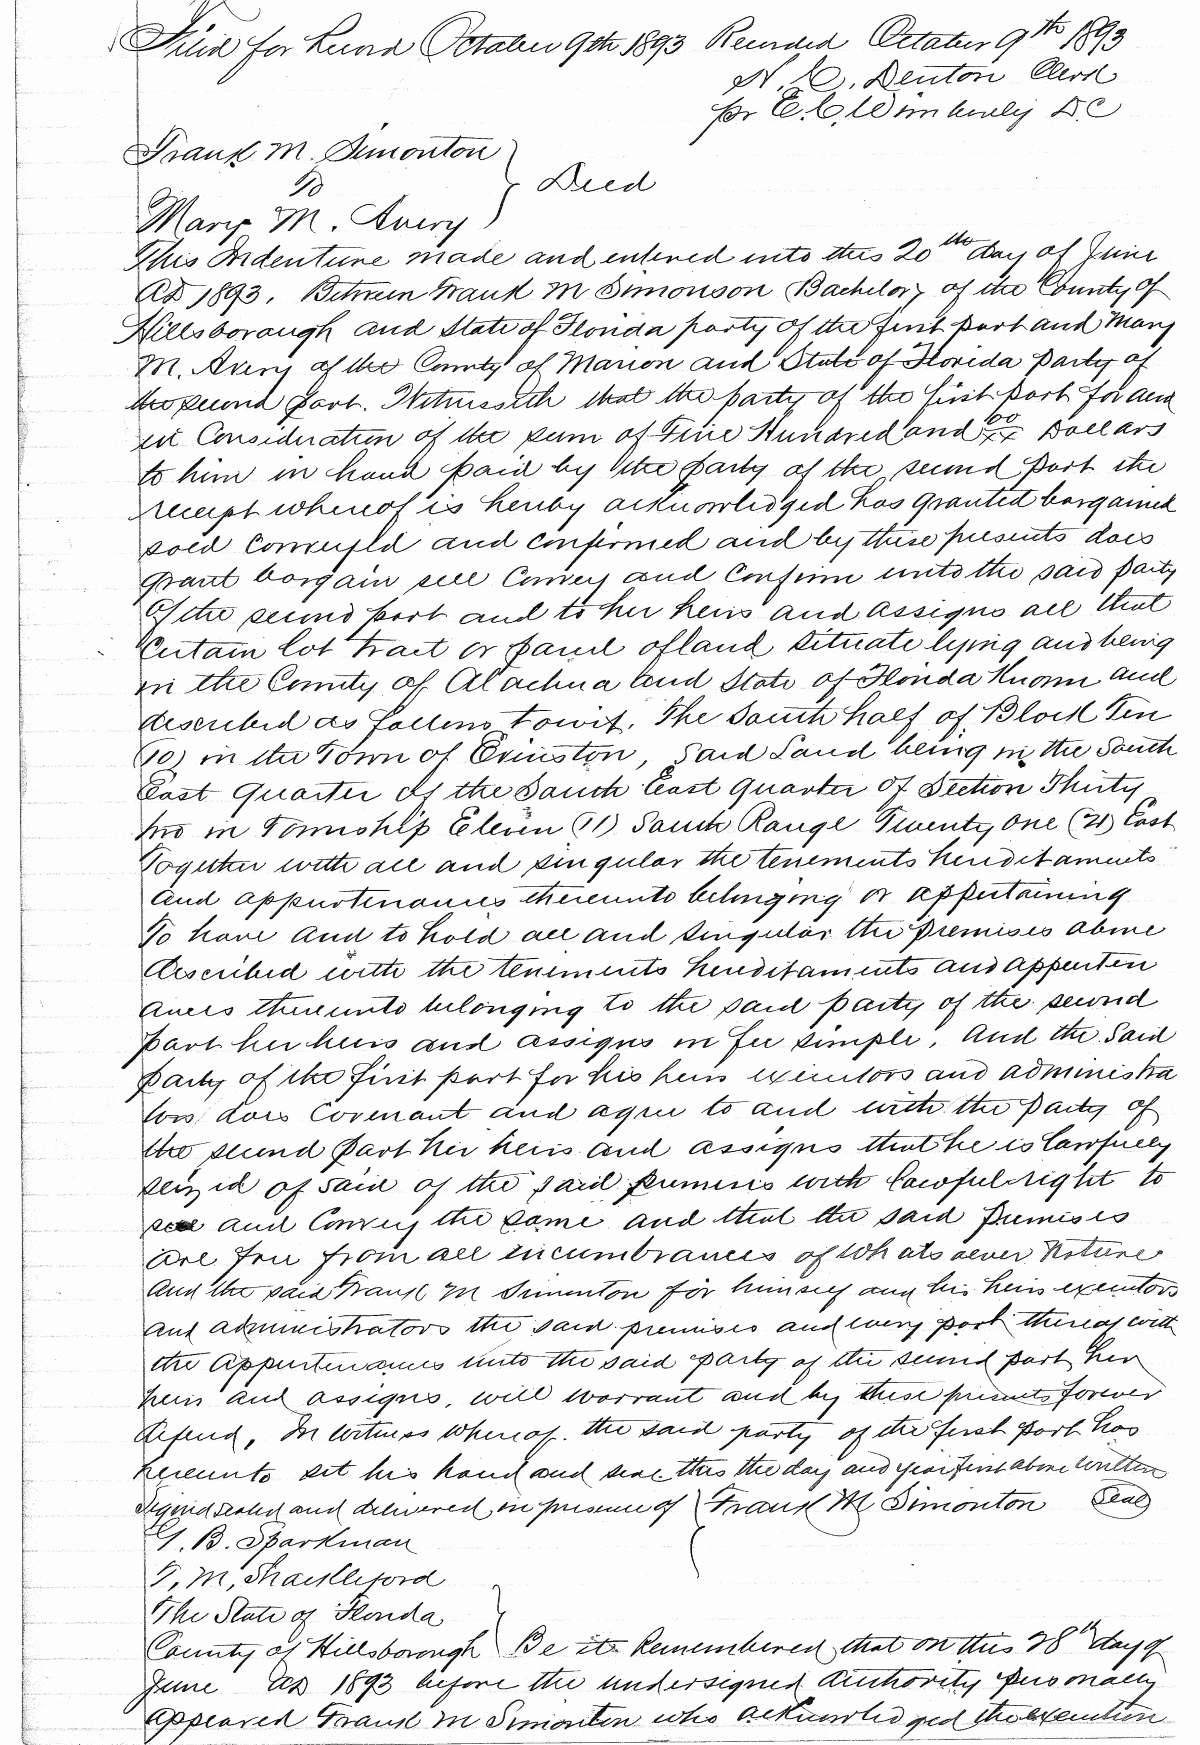 Filed for Record October 9th 1893 Recorded October 9th 1893
N. C. Denton Clerk
pr E. C. Wimberly D.C
Frank M. Simonton
To
Deed
Mary M. Avery
This Indenture made and entered into this 20th day of June
AD 1893. Between Frank M Simonson Bachelor, of the County of
Hillsborough and State of Florida party of the first part and Mary
M. Avery of the County of Marion and State of Florida party of
the second part. Witnesseth that the party of the first part for and
in Consideration of the sum of Five Hundred and 00/xx Dollars
to him in hand paid by the party of the second part the
receipt whereof is hereby acknowledged has granted bargained
sold conveyed and confirmed and by these presents does
grant bargain sell Convey and Confirm unto the said party
of the second part and to her heirs and assigns all that
Certain lot tract or parcel of land situate lying and being
in the County of Alachua and State of Florida Known and
described as follows towit. The South half of Block Ten
(10) in the Town of Evinston, Said Land being in the South
East quarter of the South East quarter of Section Thirty
two in Township Eleven (11) South Range Twenty one (21) East
Together with all and singular the tenements hereditaments
and appurtenances thereunto belonging or appertaining
To have and to hold all and singular the premises above
described with the tenements hereditaments and appurten
ances thereunto belonging to the said party of the second
part her heirs and assigns in fee simple. And the said
party of the first part for his heirs executors and administra
tors does covenant and agree to and with the party of
the second part her heirs and assigns that he is lawfully
seized of said of the said premises with lawful right to
sell and Convey the same and that the said premises
are free from all incumbrances of whatsoever nature
And the said Frank M Simonton for himself and his heirs executors
and administrators the said premises and every part thereof with
the appurtenances unto the said party of the second part her
heirs and assigns, will warrant and by these presents forever
defend, In witness whereof the said party of the first part has
hereunto set his hand and seal this the day and year first above written
Signed sealed and delivered in presence of Frank M Simonton Seal
G. B. Sparkman
T. M. Shackleford
The State of Florida
County of Hillsborough Be it Remembered that on this 28th day of
June AD 1893 before the undersigned authority personally
appeared Frank M Simonton who acknowledged the execution